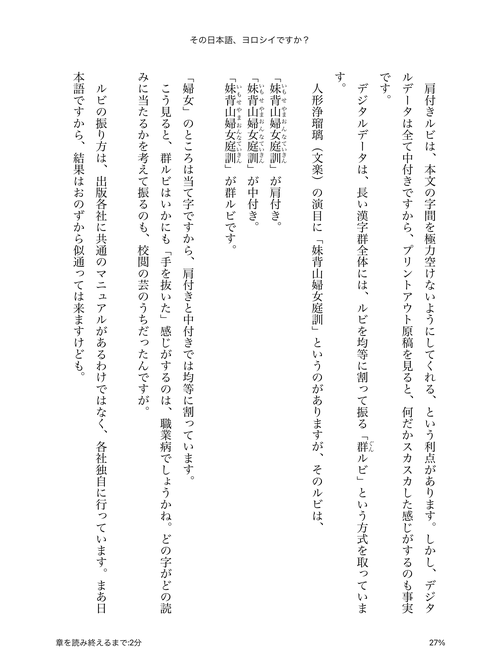 その日本語、ヨロシイですか？
肩付きルビは、本文の字間を極力空けないようにしてくれる、という利点があります。しかし、デジタ
ルデータは全て中付きですから、プリントアウト原稿を見ると、何だかスカスカした感じがするのも事実
です。
デジタルデータは、長い漢字群全体には、ルビを均等に割って振る「群ルビ」という方式を取っていま
す。
人形浄瑠璃（文楽）の演目に「妹背山婦女庭訓」というのがありますが、そのルビは、
「妹背山婦女庭訓」が肩付き。
「妹背山婦女庭訓」が中付き。
「妹背山婦女庭訓」が群ルビです。
「婦女」のところは当て字ですから、肩付きと中付きでは均等に割っています。
こう見ると、群ルビはいかにも「手を抜いた」感じがするのは、職業病でしょうかね。どの字がどの読
みに当たるかを考えて振るのも、校閲の芸のうちだったんですが。
ルビの振り方は、出版各社に共通のマニュアルがあるわけではなく、各社独自に行っています。まあ日
本語ですから、結果はおのずから似通っては来ますけども。
章を読み終えるまで:2分
27%